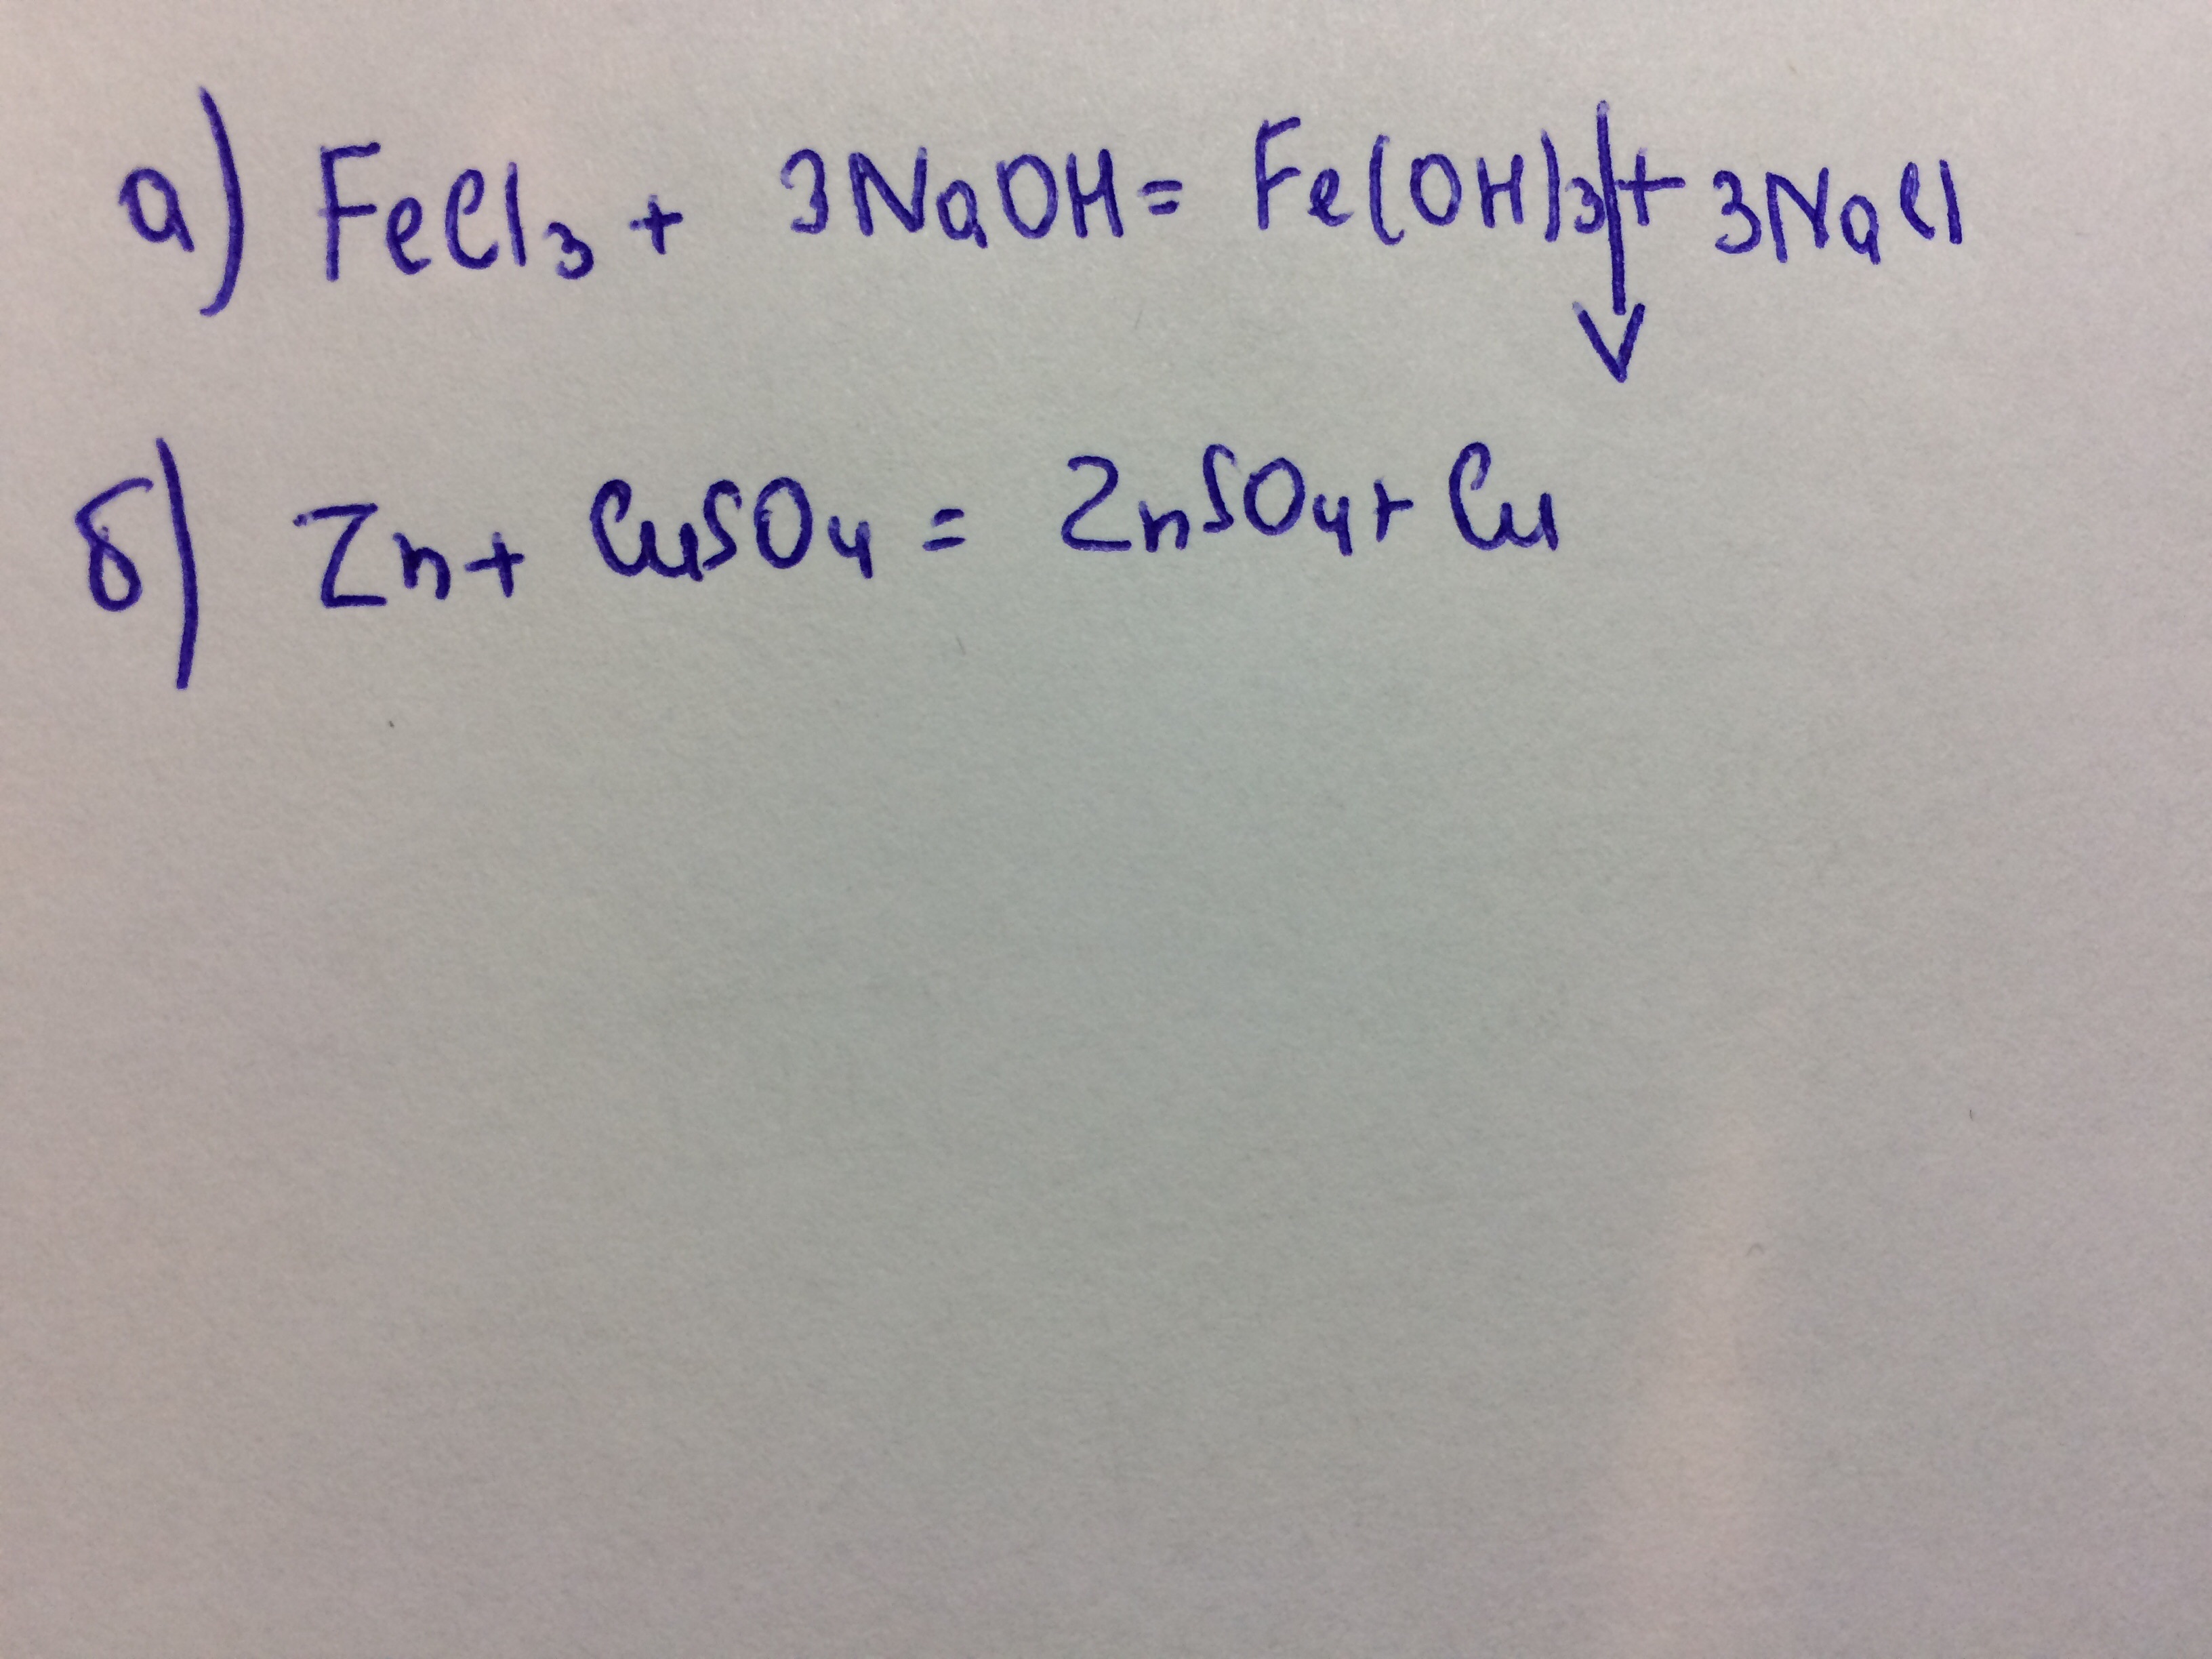 а) FeCl₃ + 3NaOH = Fe(OH)₃↓ + 3NaCl
б) Zn + CuSO₄ = ZnSO₄ + Cu